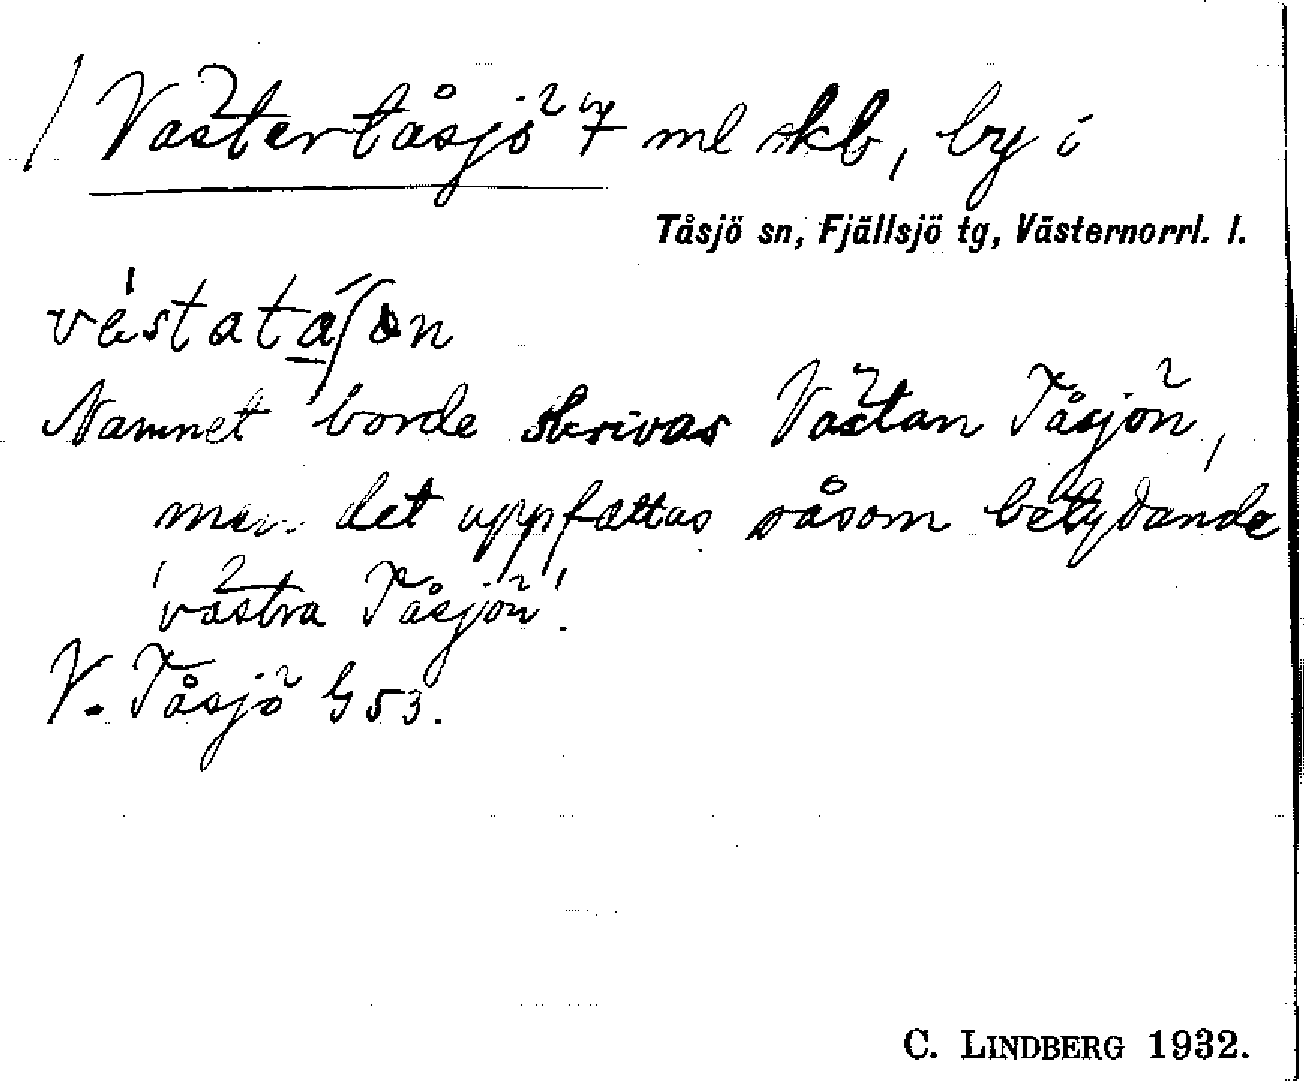 / Västertåsjö 7 ml skb, by i
Tåsjö sn, Fjällsjö tg, Västernorrl. l.
véstatáʃơn
Namnet borde skrivas Västan Tåsjön,
men det uppfattas såsom betydande
'västra Tåsjön'.
V. Tåsjö G 53.
C. LINDBERG 1932.